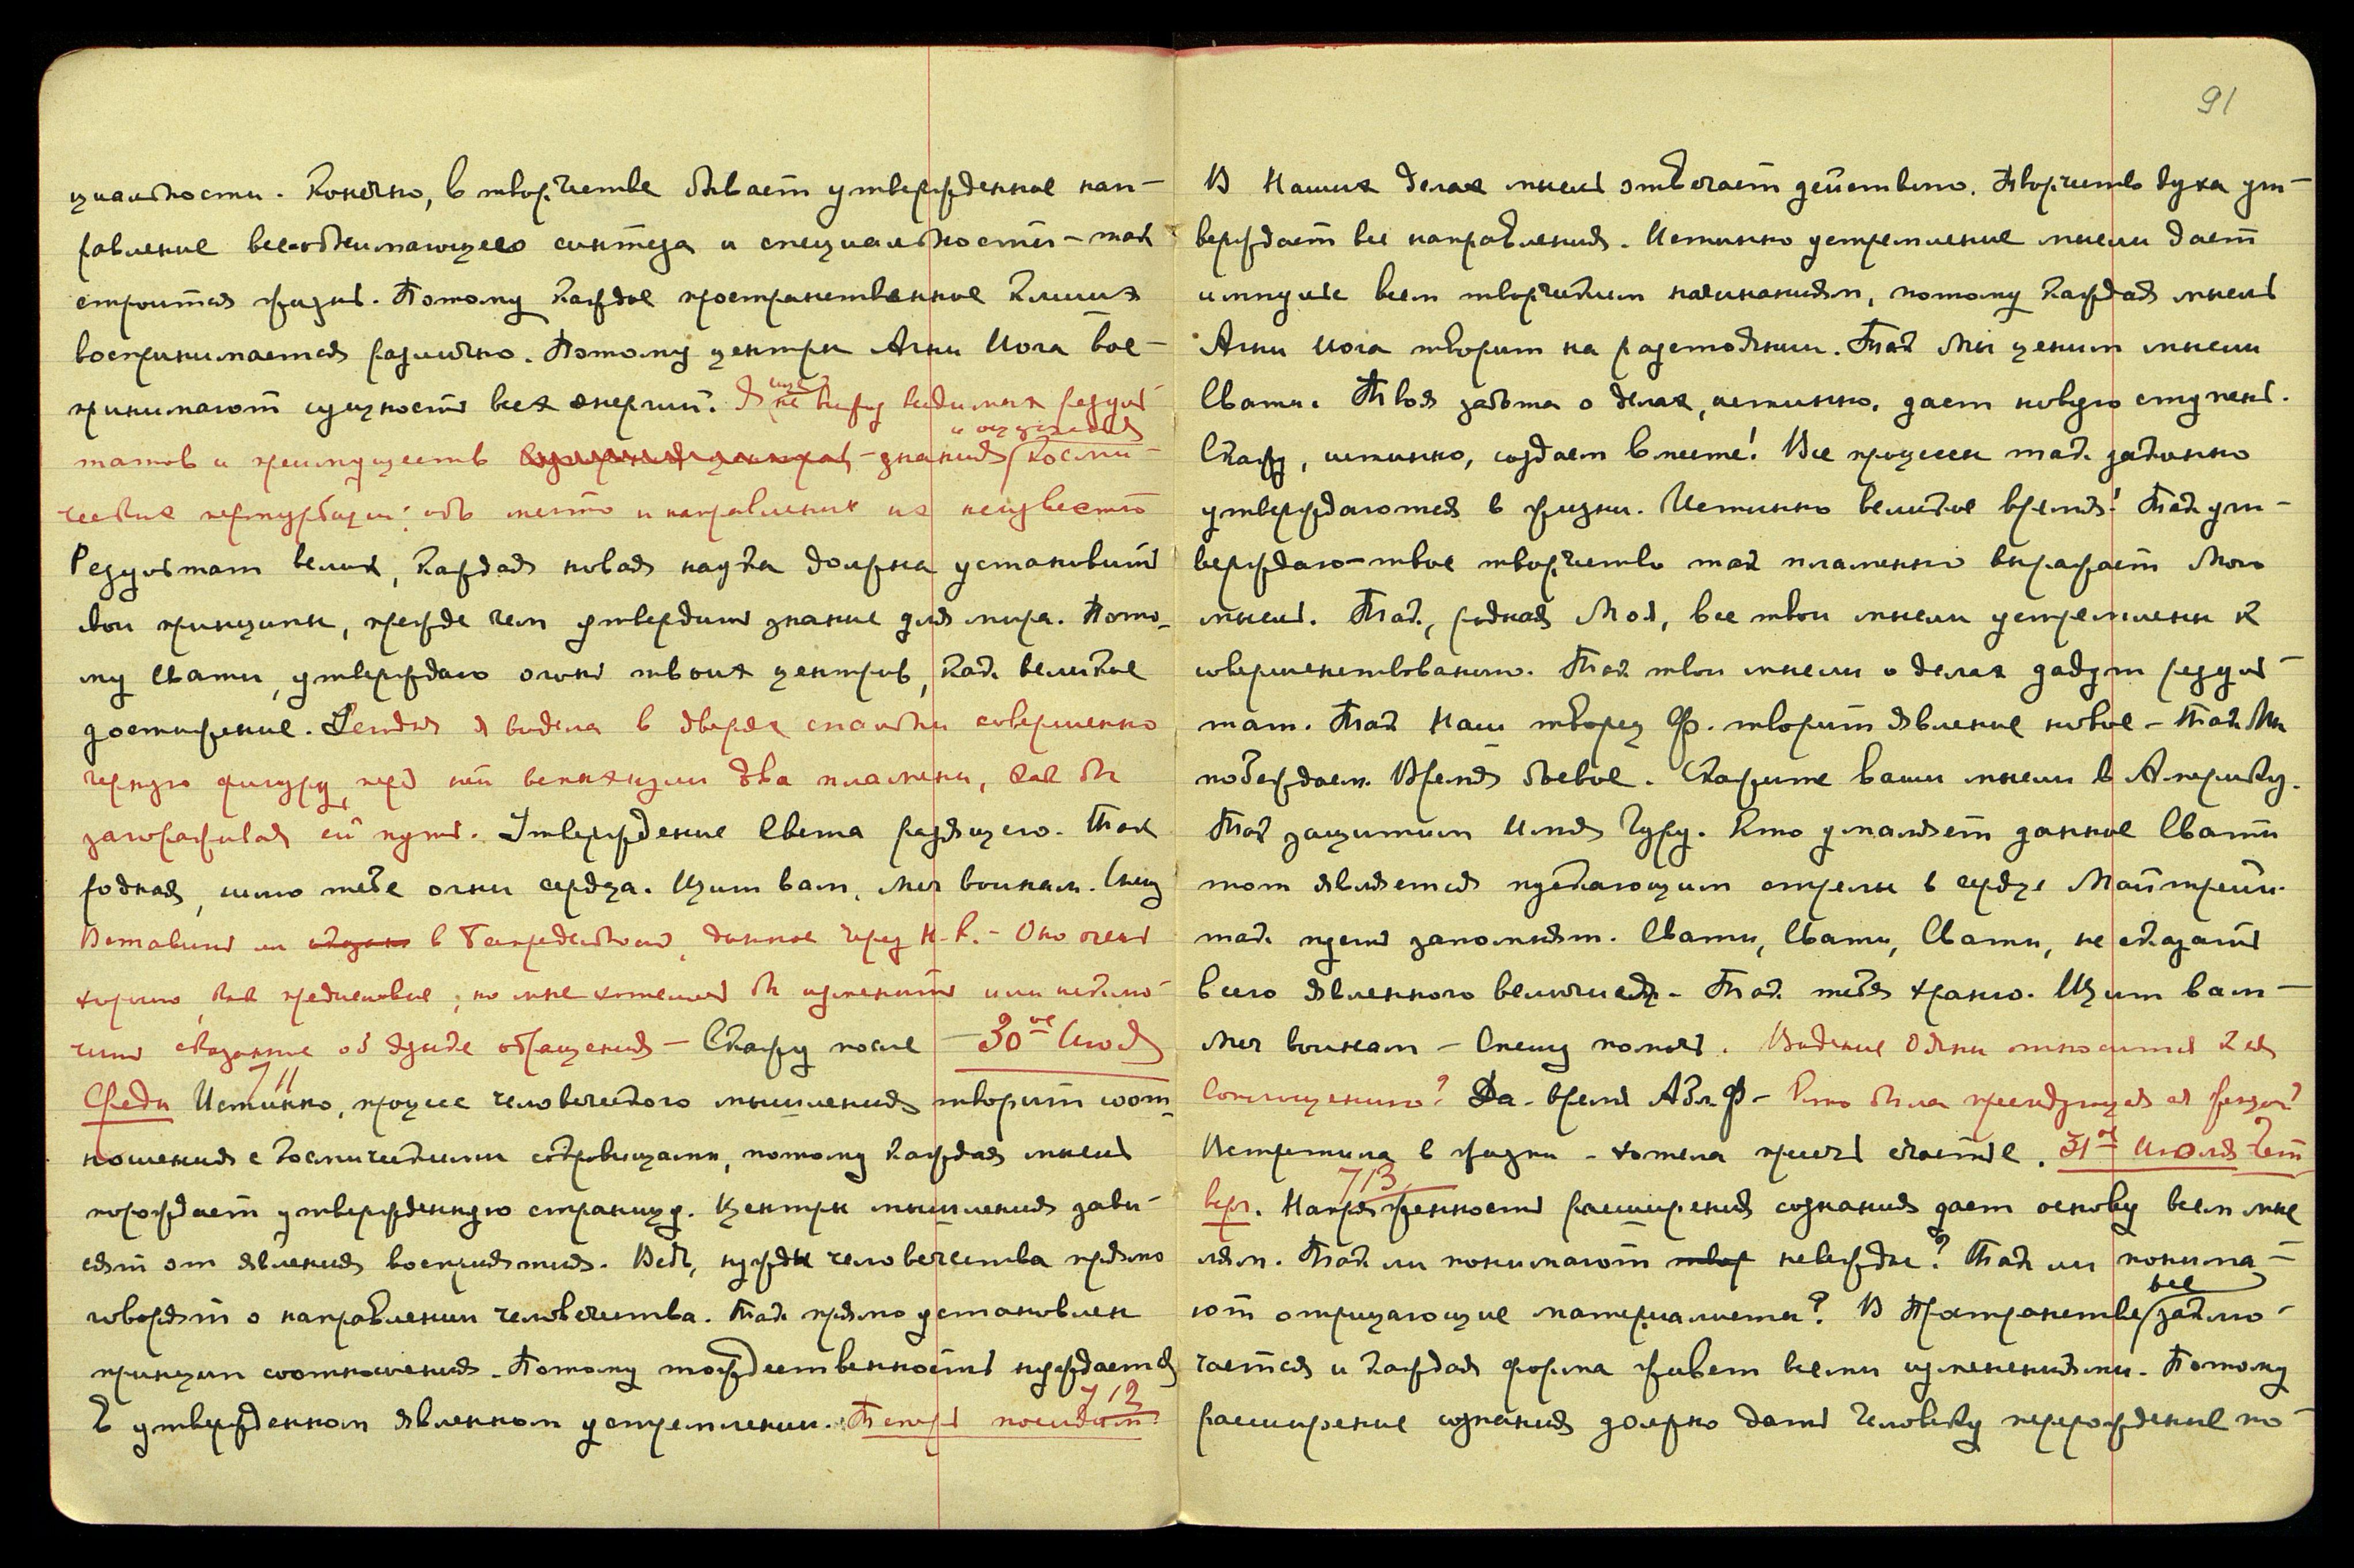 циальности. Конечно, в творчестве бывает утвержденное нап-
равление всеобнимающего синтеза и специальности – так
строится жизнь. Потому каждое пространственное клише
воспринимается различно. Потому центры Агни Йога вос-
принимают сущность всех энергий. Я не вижу видимых резуль-
и ощущения
татов и преимуществ – знания косми-
ческих пертурбаций: ибо место и направление их неизвестно
Результат велик, каждая новая наука должна установить
свои принципы, прежде чем утвердить знание для мира. Пото-
му Свати, утверждаю огонь твоих центров, как великое
достижение. Сегодня я видела в дверях спальни совершенно
черную фигуру, перед ней вспыхнули два пламени, как бы
загораживая ей путь. Утверждение Света разящего. Так
родная, шлю тебе огни сердца. Щит вам, меч воинам. Спешу
Вставить ли в Беспредельность, данное через Н.К. – Оно очень
хорошо, как предисловие, но мне хотелось бы изменить или исклю-
чить сказанное об языке обращения – Скажу после – 30ое Июля
711
Среды Истинно, процесс человеческого мышления творит соот-
ношения с космическими сокровищами, потому каждая мысль
порождает утвержденную страницу. Центры мышления зави-
сят от явления восприятия. Ведь, нужды человечества прямо
говорят о направлении человечества. Так прямо установлен
принцип соотношения. Потому тождественность нуждается
в утвержденном явленном устремлении. Теперь последам
712
91
В Наших делах мысль отвечает действию. Творчество духа ут-
верждает все направления. Истинно устремление мысли дает
импульс всем творческим начинаниям, потому каждая мысль
Агни Йога творит на расстоянии. Так Мы ценим мысли
Свати. Твоя забота о делах, истинно, дает новую ступень.
Скажу, истинно, создаем вместе! Все процессы так законно
утверждаются в жизни. Истинно великое время! Так ут-
верждаю – твое творчество так пламенно выражает Мою
мысль. Так, родная Моя, все твои мысли устремлены к
совершенствованию. Так твои мысли о делах дадут резуль-
тат. Так Наш творец Ф. творит явление новое – Так Мы
побеждаем. Время боевое. Скажите ваши мысли в Америку.
Так защитим Имя Гуру. Кто умаляет данное Свати
тот является пускающим стрелы в сердце Майтрейи.
так пусть запомнят. Свати, Свати, Свати, не сказать
всего явленного величия – Так тебя храню. Щит вам –
Меч воинам – Спешу помочь. Видение Ояны относится к ея
воплощению? Да – время Абл. Ф – Кто была преследующая ея женщ.?
Встретила в жизни – хотела пресечь счастье. 31ое Июля Чет-
713
верг. Напряженность расширения сознания дает основу всем мыс-
лям. Так ли понимают невежды? Так ли понима-
ют отрицающие материалисты? В Пространстве все заклю-
чается и каждая форма живет всеми изменениями. Потому
расширение сознания должно дать человеку перерождение по-